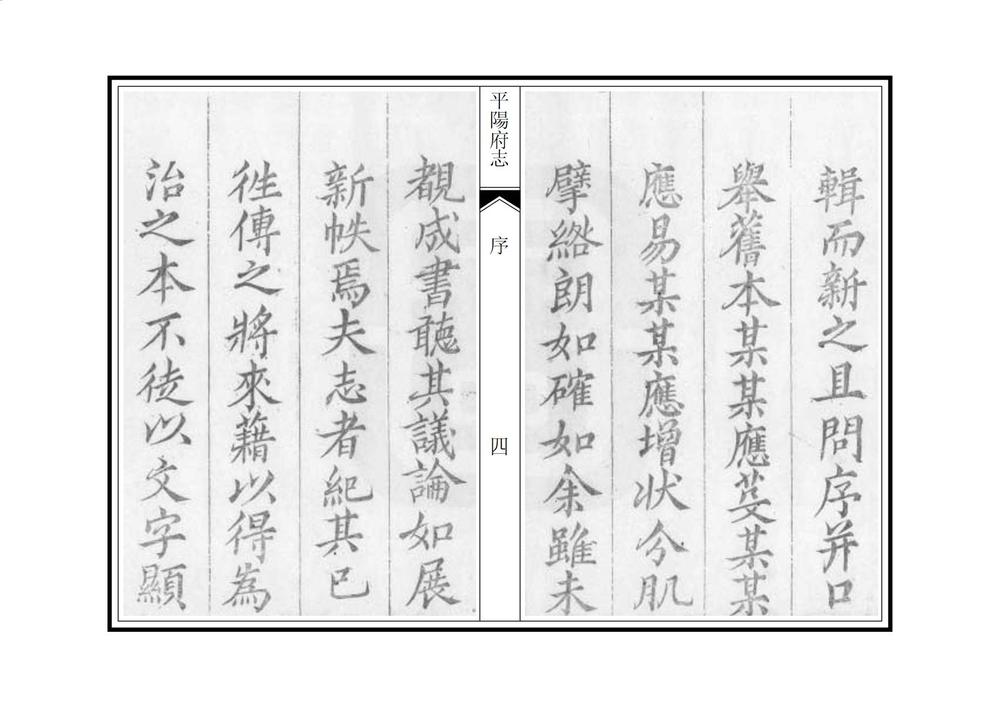 輯而新之且問序并口
舉舊本某某應芟某某
應易某某應增状分肌
擘綹朗如確如余雖未
平陽府志
序
四
覩成書聽其議論如展
新帙焉夫志者紀其已
徃傳之將來藉以得為
治之本不徒以文字顯